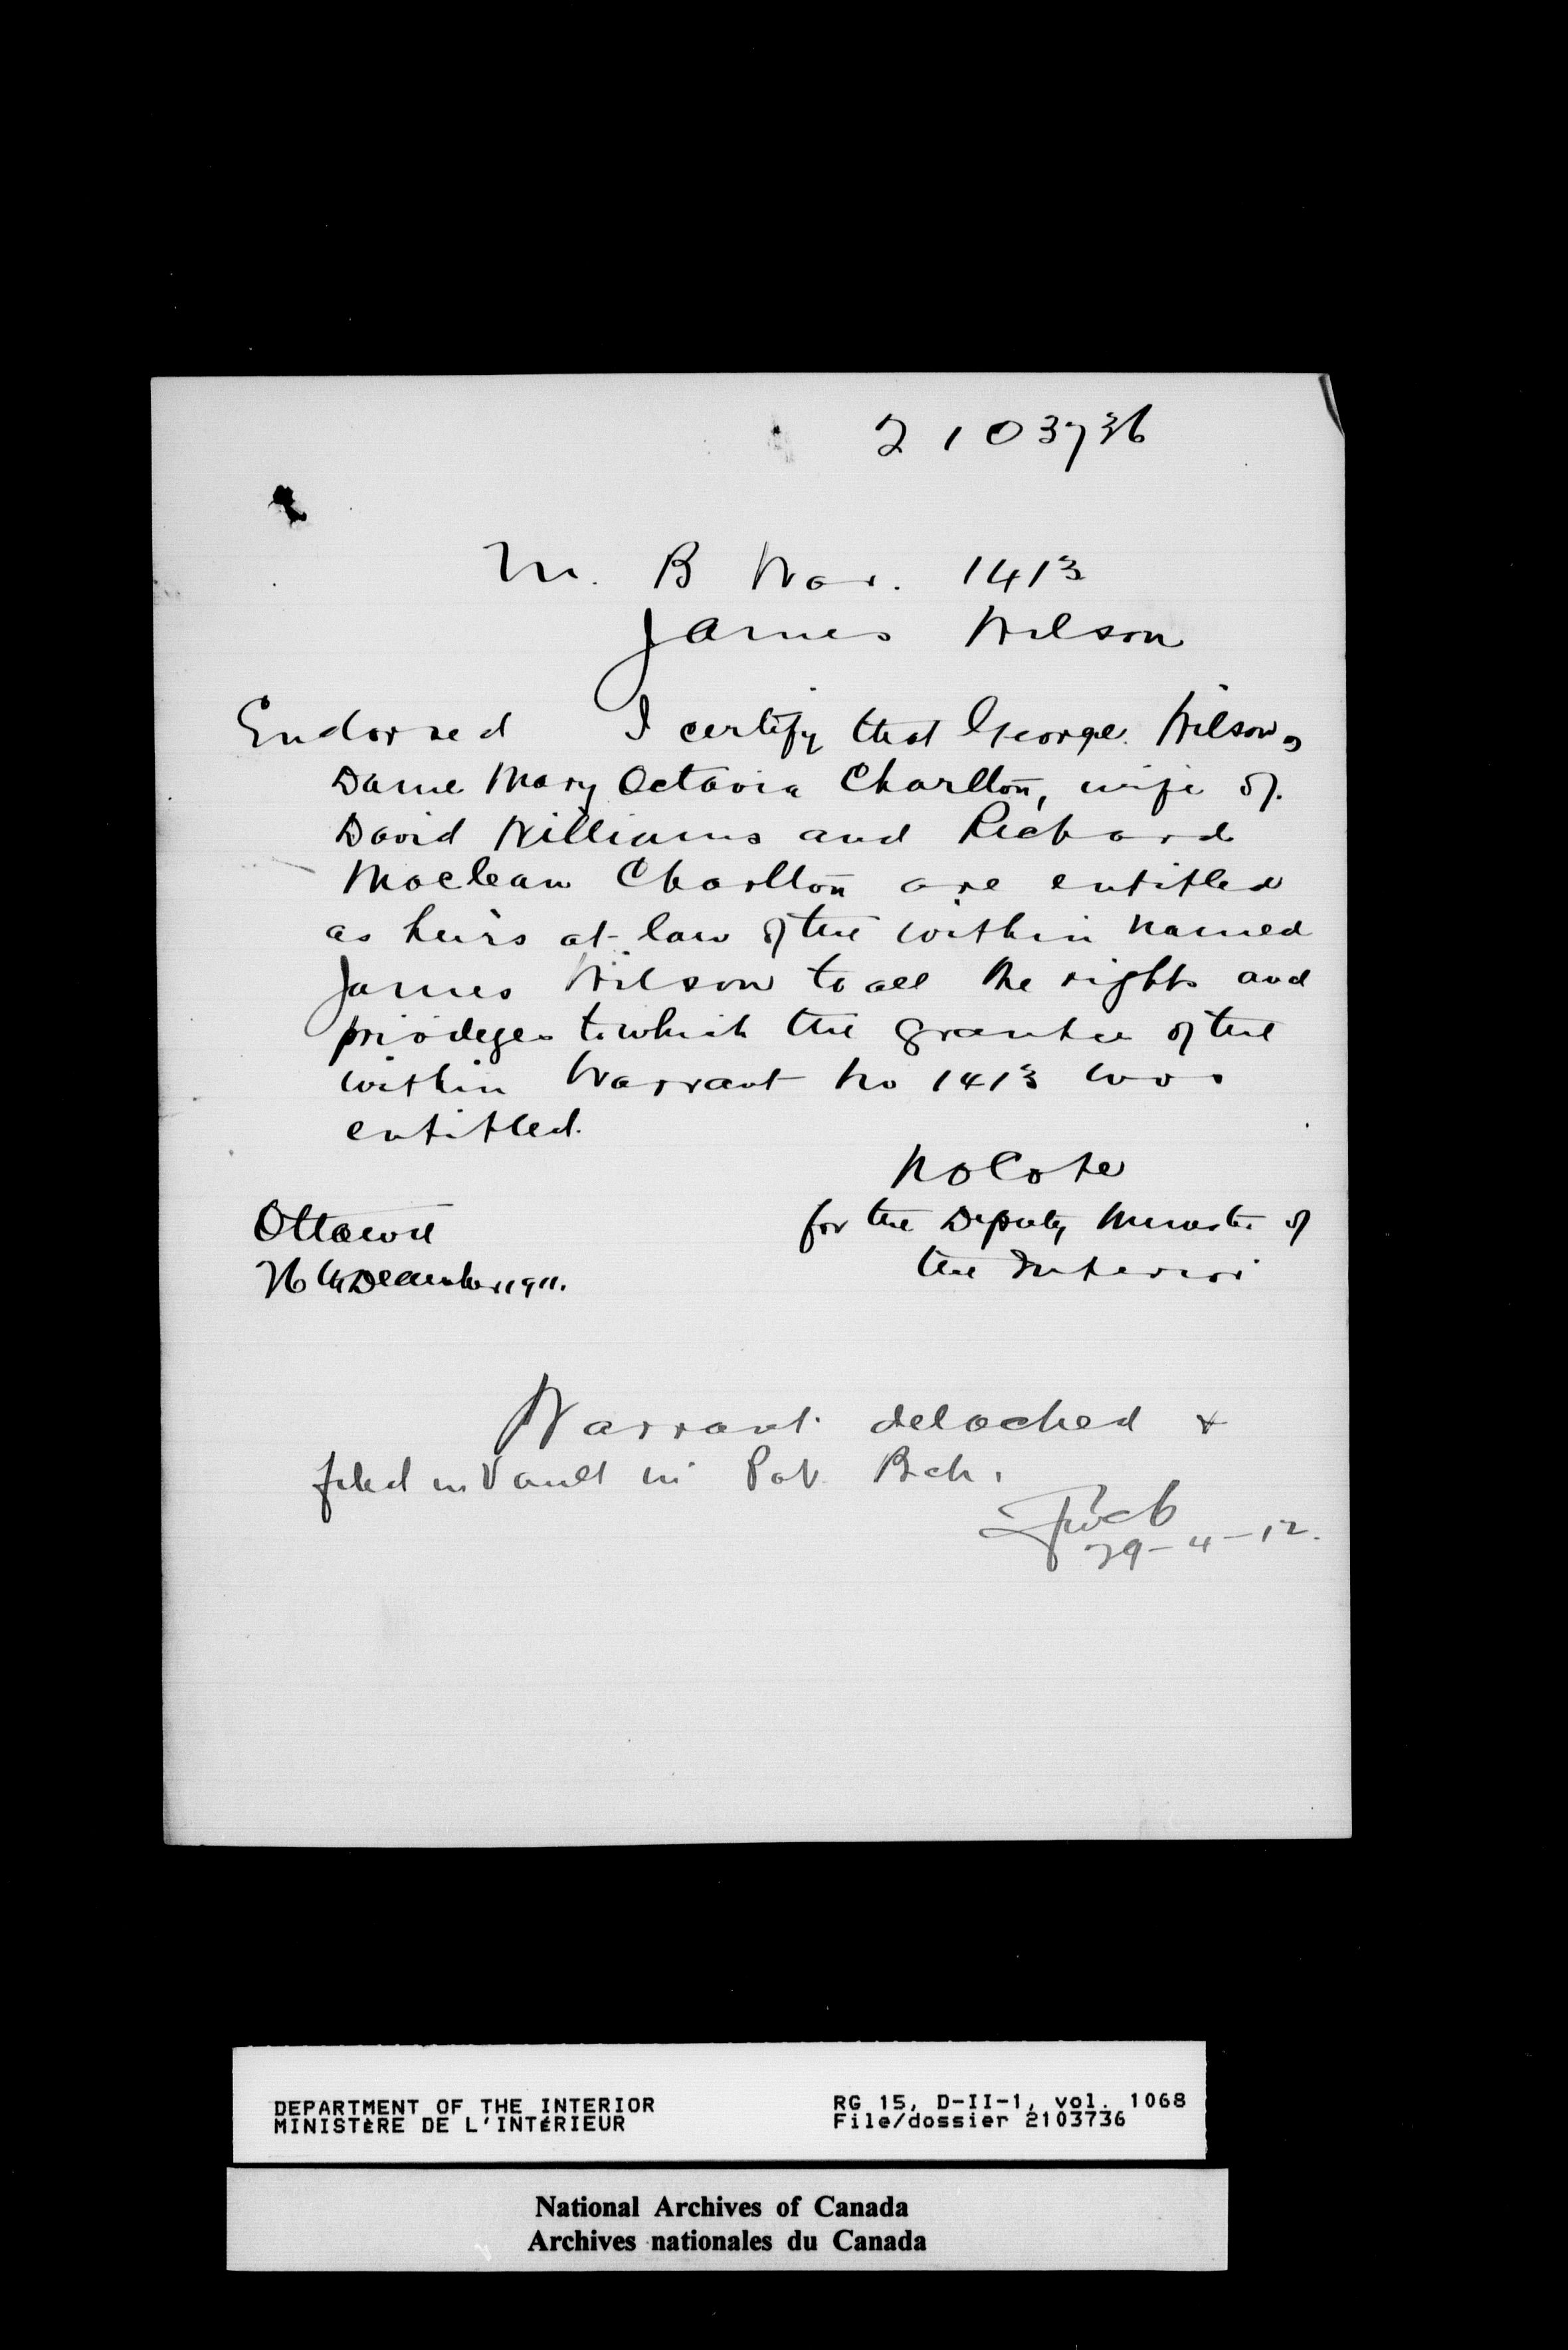 2103736
M. B War. 1413
James Wilson
Endorsed I certify that George Wilson,
Dame Mary Octavia Charlton, wife of
David Williams and Richard
Maclean Charlton are entitled
as heirs at law of the within named
James Wilson to all the rights and
privileges to which the grantee of the
within Warrant No 1413 was
entitled.
N O Cote
for the Deputy Minister of
the Interior
Ottawa
26th December 1911.
Warrant detached &
filed in Vault in Pat. Bch.
29-4-12.
DEPARTMENT OF THE INTERIOR
MINISTÈRE DE L'INTÉRIEUR
RG 15, D-II-1, vol. 1068
File/dossier 2103736
National Archives of Canada
Archives nationales du Canada